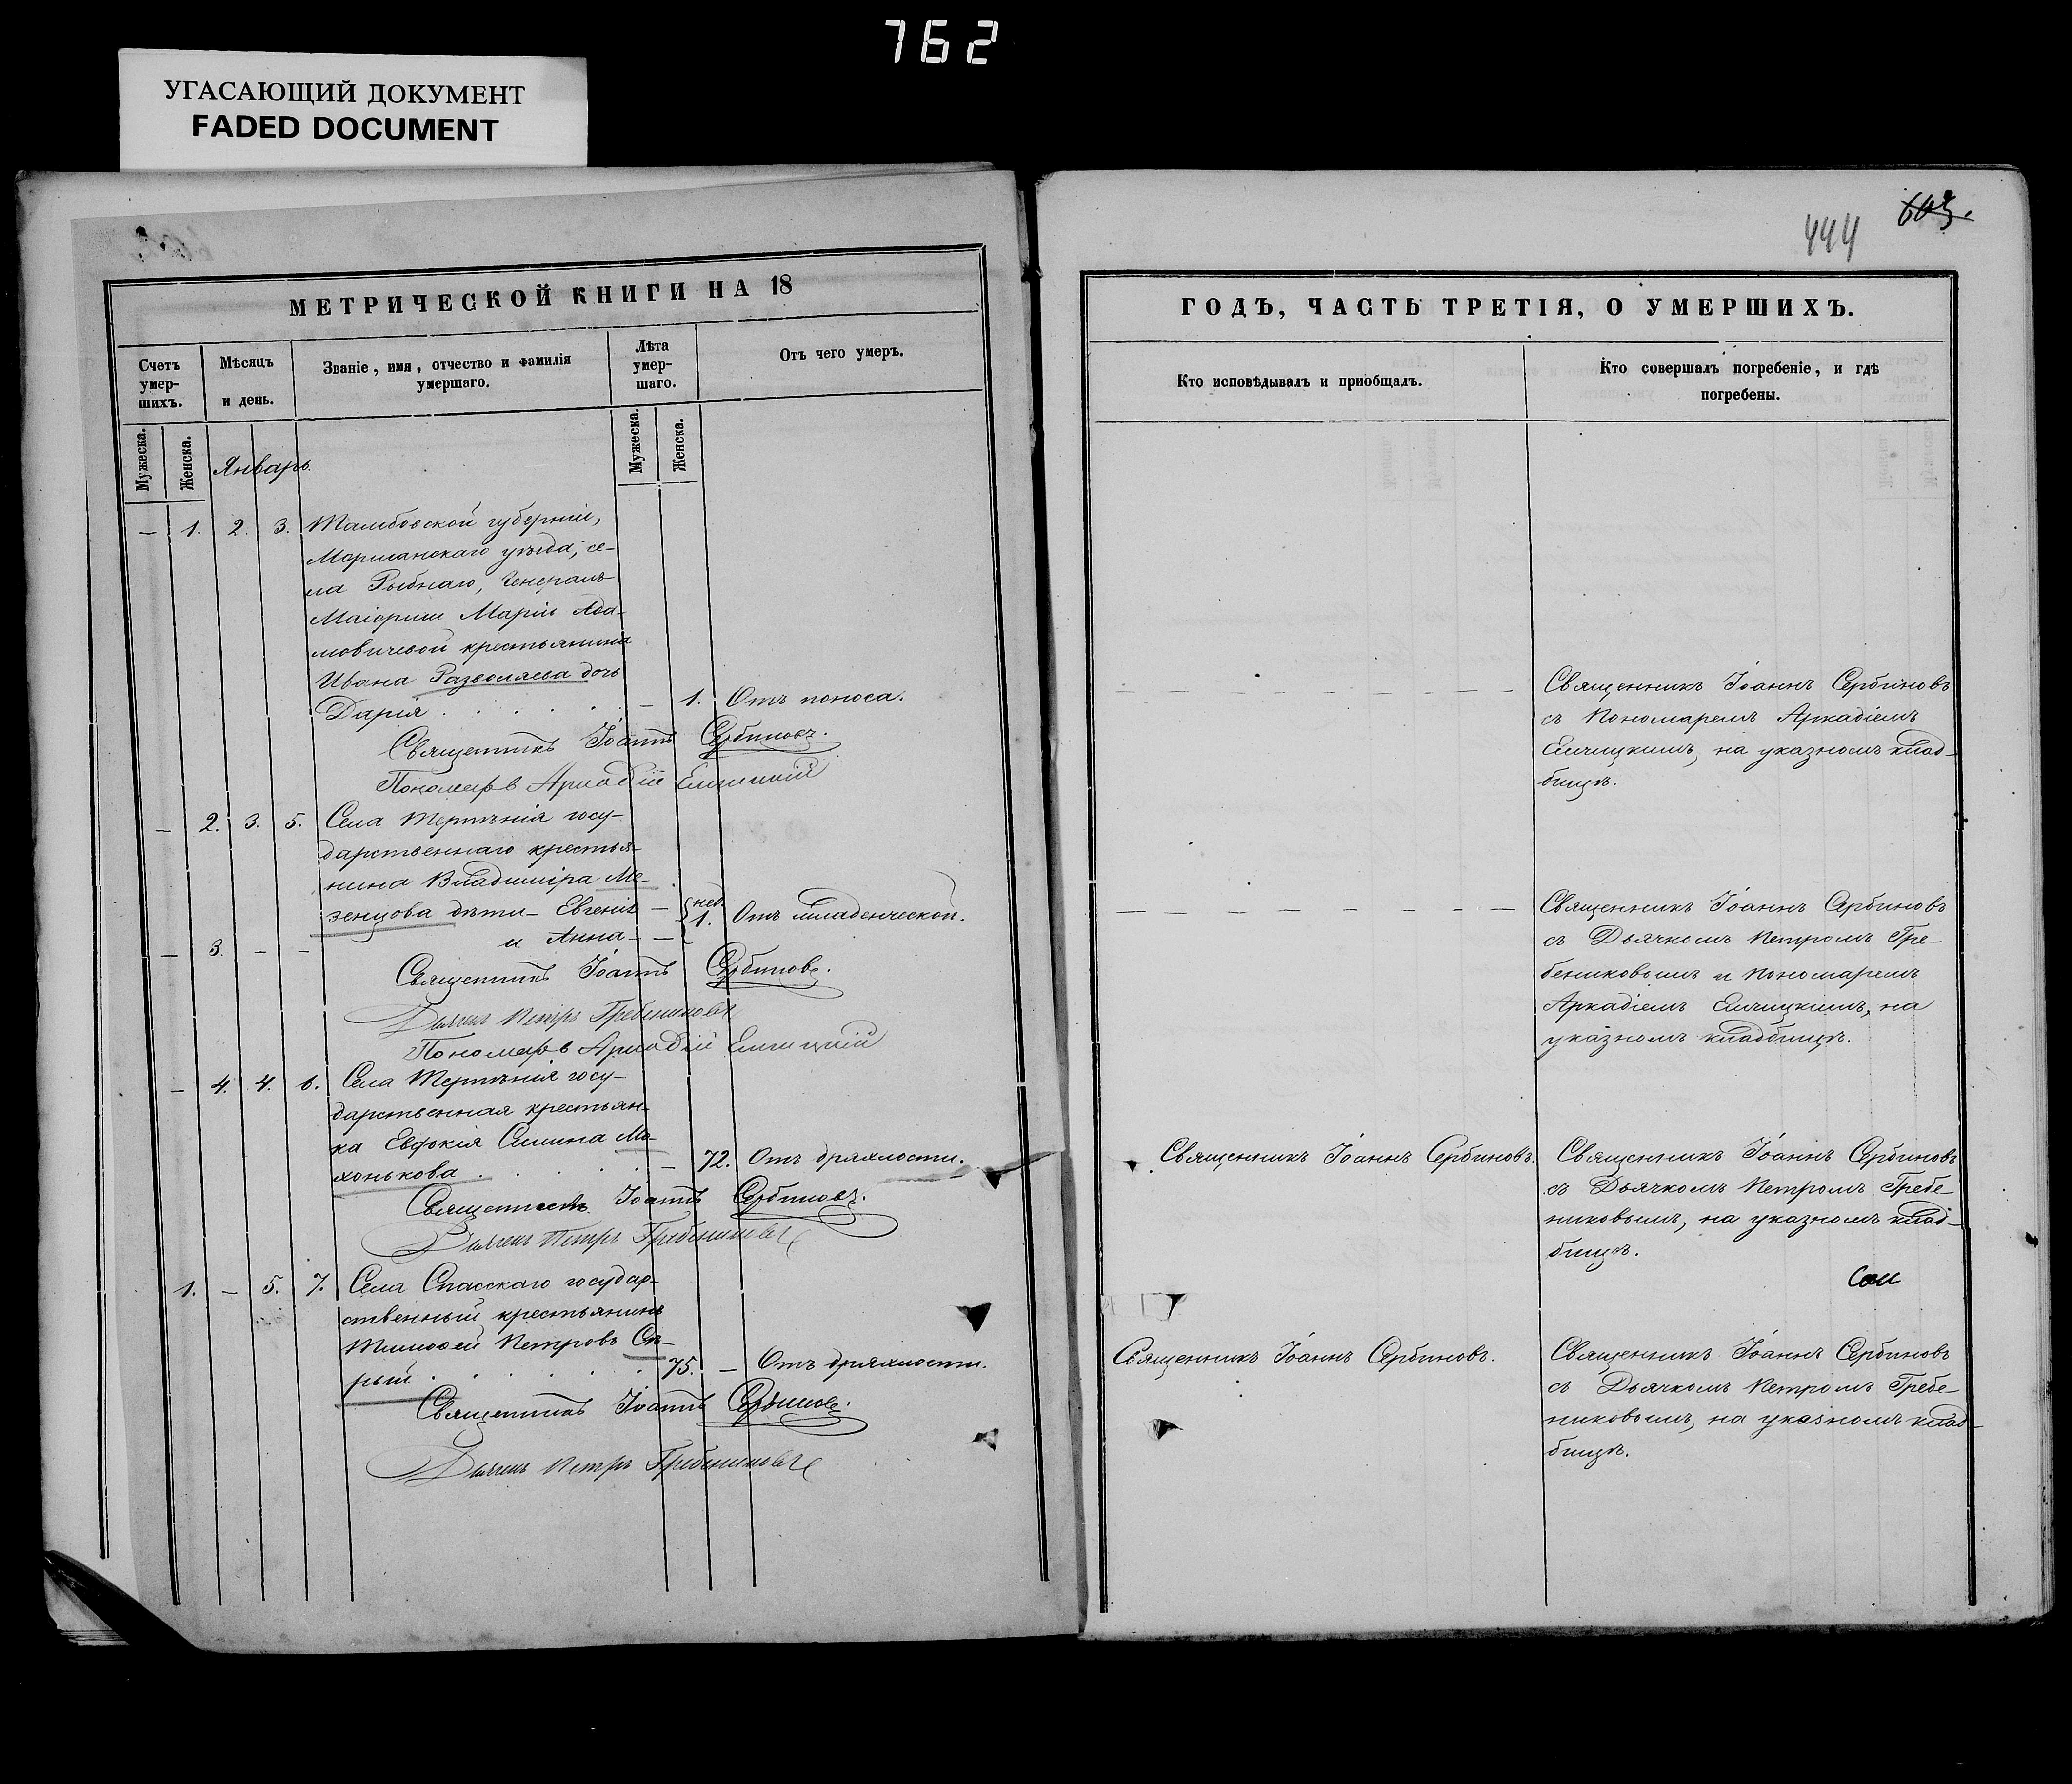 762
УГАСАЮЩИЙ ДОКУМЕНТ
FADED DOCUMENT
МЕТРИЧЕСКОЙ КНИГИ НА 18
Счетъ умер-шихъ.
Мѣсяцъ и день.
Званіе, имя, отчество и фамилія умершаго.
Лѣта умер-шаго.
Отъ чего умеръ.
Мужеска.
Женска.
Январь.
Мужеска.
Женска.
— 1. 2. 3. Тамбовской губерніи,
Моршанскаго уѣзда, се-
ла Рыбнаго, Генералъ
Маіорши Маріи Ада-
мовичевой крестьянина
Ивана Разволяева дочь
Дарія . . . . . — 1. Отъ поноса.
Священникъ Іоаннъ Сербиновъ.
Пономарь Аркадій
— 2. 3. 5. Села госу-
дарственнаго крестья-
нина Владиміра Ме-
зенцова дѣти – Евгенія — нед. 1. Отъ младенческой.
— 3. – – и Анна – —
Священникъ Іоаннъ Сербиновъ.
Дьячекъ Петръ Гребениковъ
Пономарь Аркадій
— 4. 4. 6. Села госу-
дарственная крестьян-
ка Евфокія Ма-
хонькова . . . . . — 72. Отъ дряхлости.
Священникъ Іоаннъ Сербиновъ.
Дьячекъ Петръ Гребениковъ
1. — 5. 7. Села Спасскаго государ-
ственный крестьянинъ
Тимофей Петровъ Сѣ-
рый . . . . . 75. — Отъ дряхлости.
Священникъ Іоаннъ Сербиновъ.
Дьячекъ Петръ Гребениковъ
444 603.
ГОДЪ, ЧАСТЬ ТРЕТІЯ, О УМЕРШИХЪ.
Кто исповѣдывалъ и пріобщалъ.
Кто совершалъ погребеніе, и гдѣ погребены.
Священникъ Іоаннъ Сербиновъ
съ Пономаремъ Аркадіемъ
на указномъ клад-
бищѣ.
Священникъ Іоаннъ Сербиновъ
съ Дьячкомъ Петромъ Гре-
бениковымъ и Пономаремъ
Аркадіемъ на
указномъ кладбищѣ.
Священникъ Іоаннъ Сербиновъ.
Священникъ Іоаннъ Сербиновъ
съ Дьячкомъ Петромъ Гребе-
никовымъ, на указномъ клад-
бищѣ.
Священникъ Іоаннъ Сербиновъ.
Священникъ Іоаннъ Сербиновъ
съ Дьячкомъ Петромъ Гребе-
никовымъ, на указномъ клад-
бищѣ.